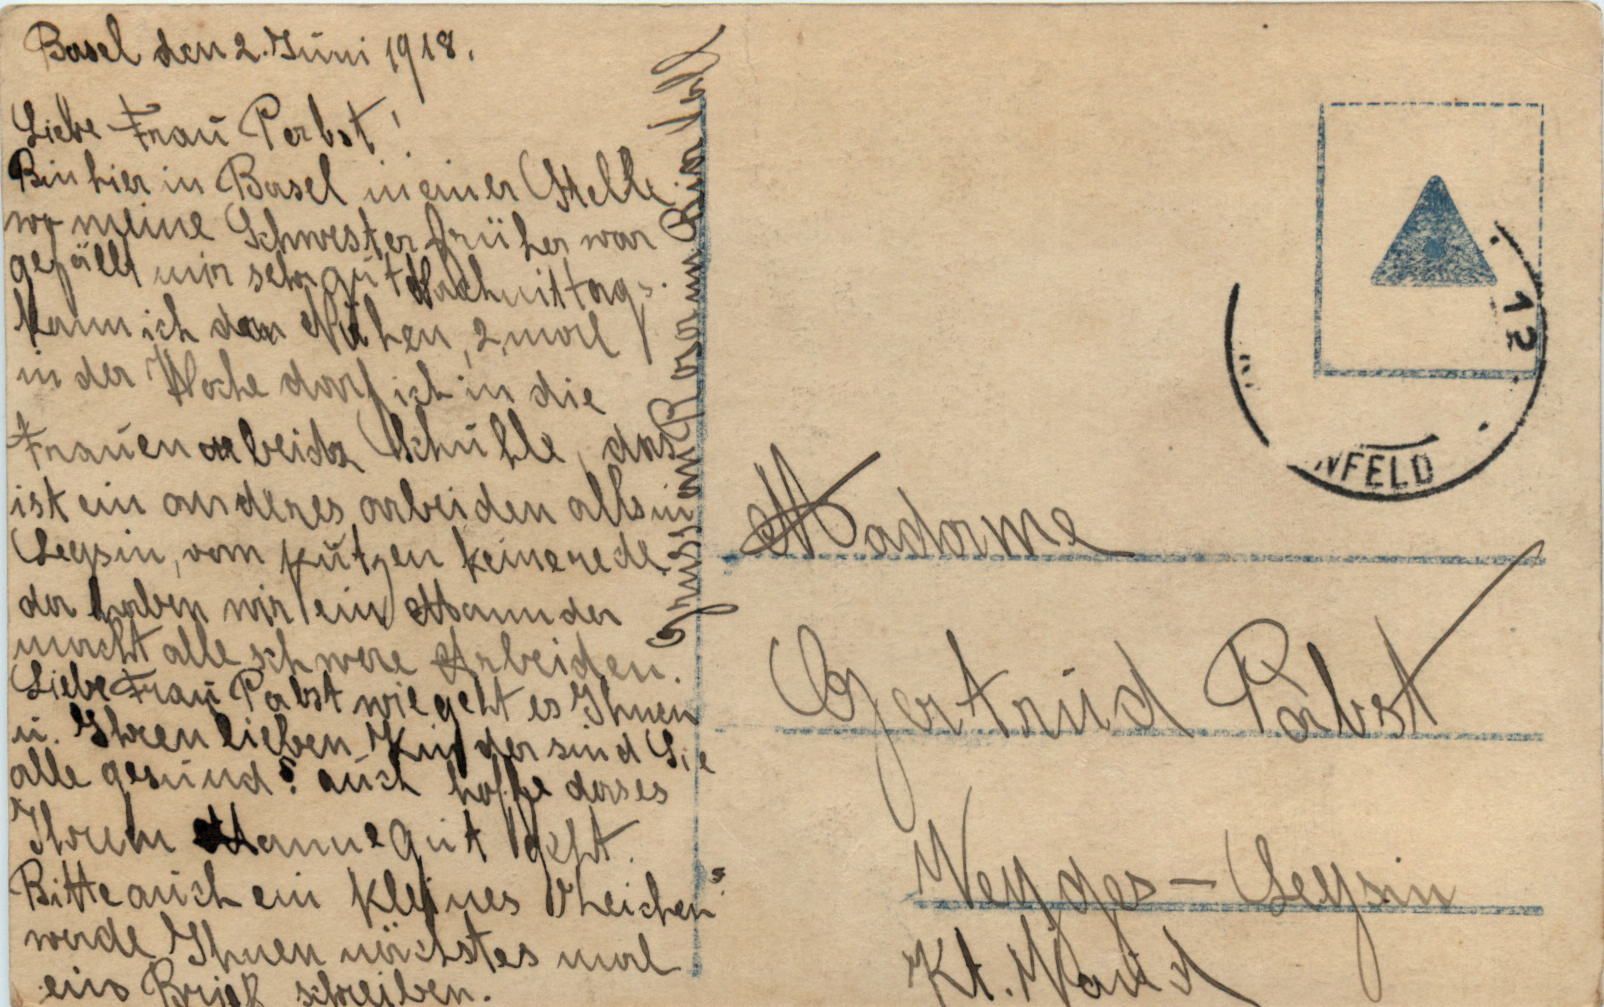 Basel den 2. Juni 1918.
Liebe Frau Perbst!
Bin hier in Basel in einer Stelle
wo meine Schwester früher war
gefällt mir sehr gut Nachmittags
kann ich den Nähen, 2 mal
in der Woche darf ich in die
Frauenarbeids Schuhle, das
ist ein anderes arbeiden alls in
Leysin, vom putzen keine rede
da haben wir ein Mann der
macht alle schwere Arbeiden.
Liebe Frau Pabst wie geht es Ihnen
u. Ihren lieben Kinder sind Sie
alle gesund? auch hoffe das es
Ihrem Manne gut geht.
Bitte auch ein kleines
werde Ihnen nächstes mal
ein Brief schreiben.
Grussen Rosa
12
NFELD
Madame
Gertrud Pabst
Veyges - Leysin
Kt. Waud